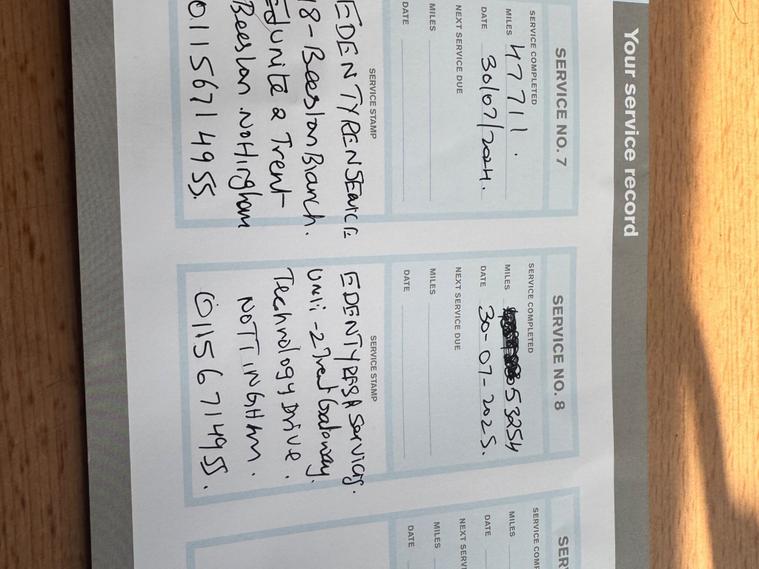 Your service record
SERVICE NO. 7
SERVICE COMPLETED
MILES 47711.
DATE 30/07/2024.
NEXT SERVICE DUE
MILES
DATE
SERVICE STAMP
EDEN TYREN SERVICE
18-Beeston Branch.
unite 2 Trent
Beeston Nottingham
01156714955.
SERVICE NO. 8
SERVICE COMPLETED
MILES 53254
DATE 30-07-2025.
NEXT SERVICE DUE
MILES
DATE
SERVICE STAMP
EDEN TYRES & Services.
Unit-2 Trent Gateway.
Technology Drive.
NOTTINGHAM.
01156714955.
SER
SERVICE COM
MILES
DATE
NEXT SERV
MILES
DATE